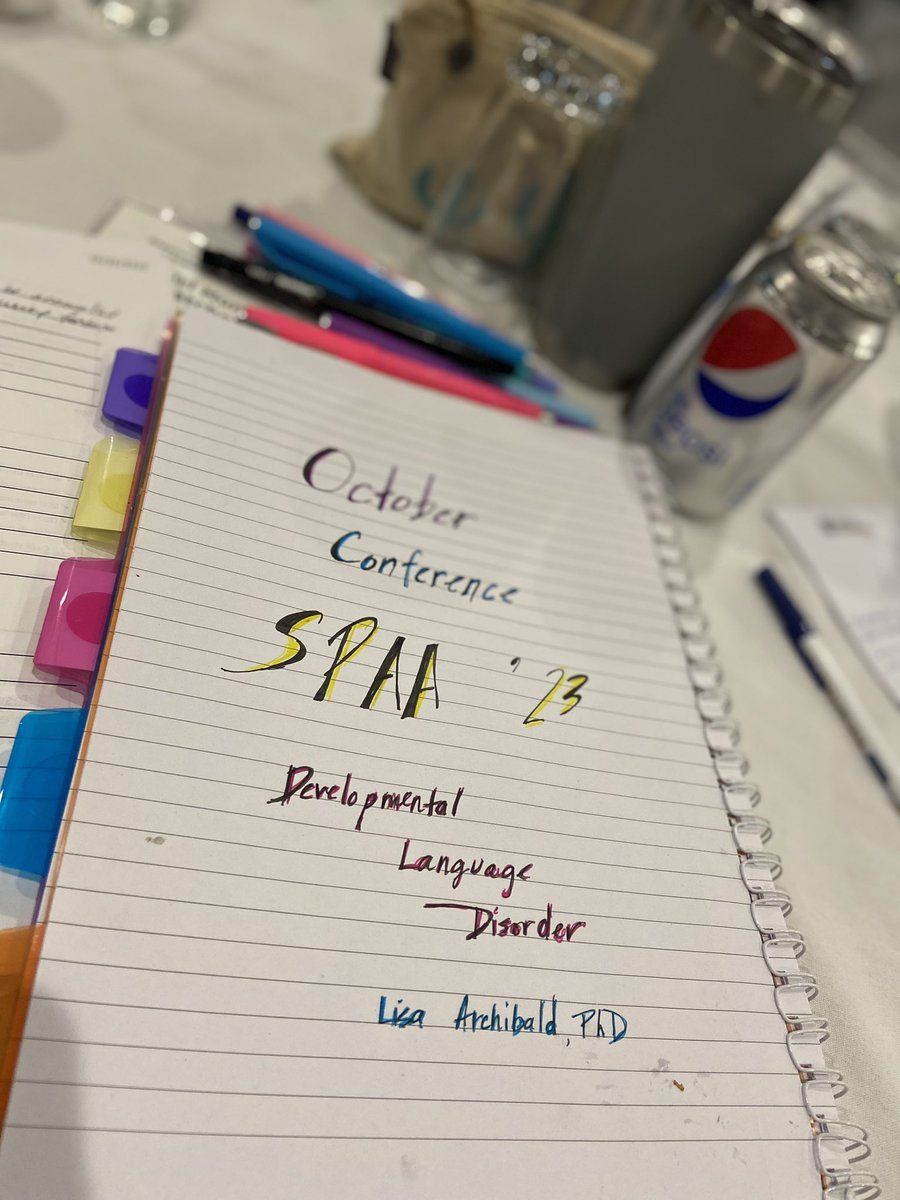 October
Conference
SPAA '23
Developmental
Language
Disorder
Lisa Archibald, PhD
pepsi